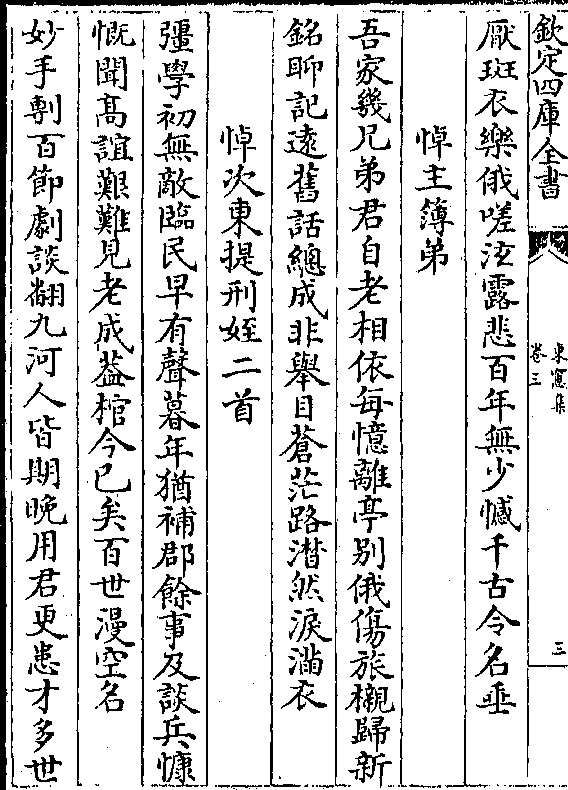 欽定四庫全書
東窻集
卷三
三
厭斑衣樂俄嗟泣露悲百年無少憾千古令名垂
悼主簿弟
吾家幾兄弟君自老相依每憶離亭别俄傷旅櫬歸新
銘聊記遠舊話總成非舉目蒼茫路潸然淚滿衣
悼次東提刑姪二首
彊學初無敵臨民早有聲暮年猶補郡餘事及談兵慷
慨聞髙誼艱難見老成葢棺今已矣百世漫空名
妙手剸百節劇談翻九河人皆期晚用君更患才多世